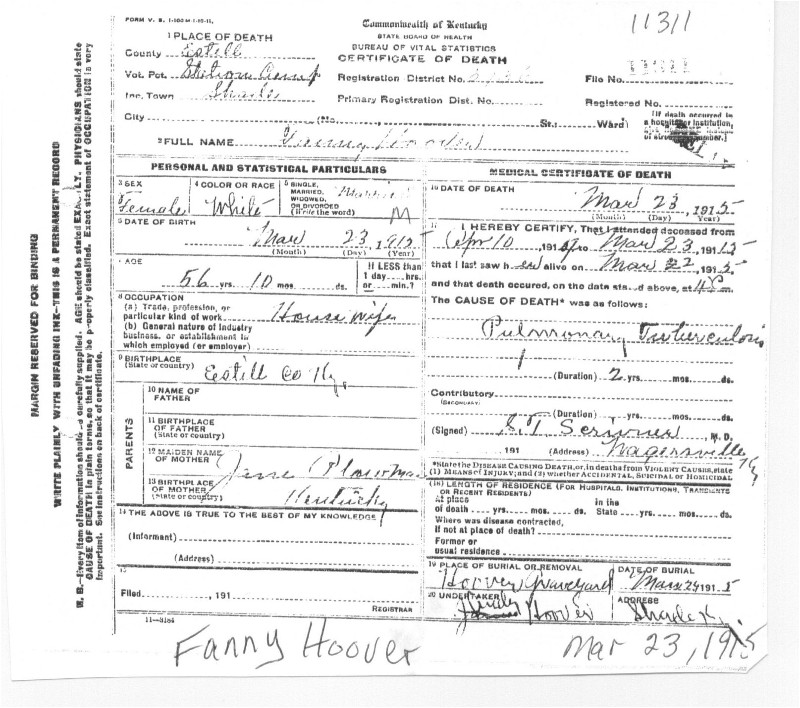 FORM V. S. 1-100 M 1-10-11.
11311
Commonwealth of Kentucky
STATE BOARD OF HEALTH
BUREAU OF VITAL STATISTICS
CERTIFICATE OF DEATH
1 PLACE OF DEATH
County Estill
Vot. Pct. Station Camp
Inc. Town
City (No. St.; Ward)
Registration District No.
File No.
Primary Registration Dist. No.
Registered No.
[If death occurred in a hospital or institution,
2 FULL NAME Fanny Hoover
PERSONAL AND STATISTICAL PARTICULARS
3 SEX
Female
4 COLOR OR RACE
White
5 SINGLE, MARRIED, WIDOWED, OR DIVORCED (Write the word)
Married
M
6 DATE OF BIRTH
Mar 23, 1915
(Month) (Day) (Year)
7 AGE
56 yrs. 10 mos. ds.
If LESS than 1 day... hrs. or... min.?
8 OCCUPATION
(a) Trade, profession, or particular kind of work House wife
(b) General nature of industry business, or establishment in which employed (or employer)
9 BIRTHPLACE
(State or country) Estill Co Ky.
PARENTS
10 NAME OF FATHER
11 BIRTHPLACE OF FATHER (State or country)
12 MAIDEN NAME OF MOTHER Jane
13 BIRTHPLACE OF MOTHER (State or country) Kentucky
14 THE ABOVE IS TRUE TO THE BEST OF MY KNOWLEDGE
(Informant)
(Address)
15
Filed, 191
REGISTRAR
11—3184
MEDICAL CERTIFICATE OF DEATH
16 DATE OF DEATH
Mar 23, 1915
(Month) (Day) (Year)
17 I HEREBY CERTIFY, That I attended deceased from
Apr 10 191 to Mar 23, 1915
that I last saw her alive on Mar 22 1915
and that death occured, on the date stated above, at 4 P m.
The CAUSE OF DEATH* was as follows:
Pulmonary Tuberculosis
(Duration) 2 yrs. mos. ds.
Contributory
(SECONDARY)
(Duration) yrs. mos. ds.
(Signed) S.T. Scrivner, M. D.
191 (Address) Wagersville Ky
*State the DISEASE CAUSING DEATH, or, in deaths from VIOLENT CAUSES, state
(1) MEANS OF INJURY; and (2) whether ACCIDENTAL, SUICIDAL or HOMICIDAL
(18) LENGTH OF RESIDENCE (FOR HOSPITALS, INSTITUTIONS, TRANSIENTS
OR RECENT RESIDENTS)
At place of death yrs. mos. ds. In the State yrs. mos. ds.
Where was disease contracted,
if not at place of death?
Former or
usual residence
19 PLACE OF BURIAL OR REMOVAL
Hoover Graveyard
DATE OF BURIAL
Mar 24 1915
20 UNDERTAKER
Hoover
ADDRESS
MARGIN RESERVED FOR BINDING
WRITE PLAINLY WITH UNFADING INK—THIS IS A PERMANENT RECORD
N. B.—Every item of information should be carefully supplied. AGE should be stated EXACTLY. PHYSICIANS should state
CAUSE OF DEATH in plain terms, so that it may be properly classified. Exact statement of OCCUPATION is very
important. See instructions on back of certificate.
Fanny Hoover
Mar 23, 1915